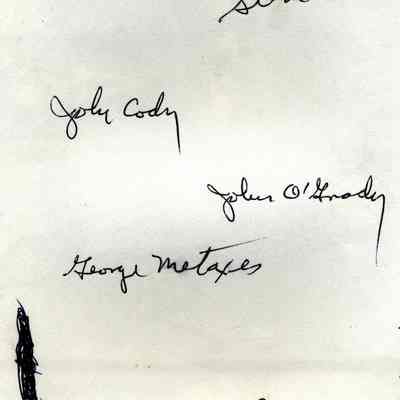 John Cody
John O'Grady
George Metaxes